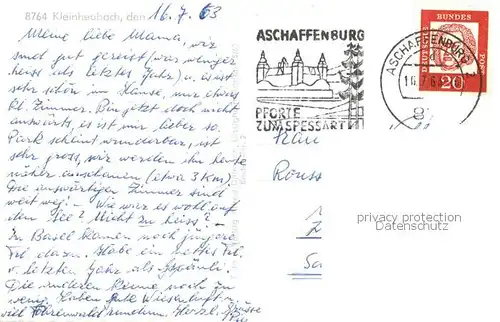 8764 Kleinheubach, den 16.7.63
Meine liebe Mama, wir
sind gut gereist (war weniger
heiss als letztes Jahr) u. es ist
sehr schön im Hause, nur etwas
kl. Zimmer. Bin jetzt doch nicht
auswärts, es ist mir lieber so.
Park scheint wunderbar, ist
sehr gross, wir werden ihn heute
näher anschauen (etwa 3 km)
Die auswärtigen Zimmer sind
weit weg! - Wie war es wohl auf
dem See? Nicht zu heiss? -
In Basel kamen noch jüngere
dazu. Habe ein nettes
v. letztem Jahr als
Die anderen Beine noch zu
wenig. Haben gute Wiesenluft u.
viel Föhrenwald rundum. Herzl. Grüsse
ASCHAFFENBURG
PFORTE
ZUM SPESSART
ASCHAFFENBURG
16.7.6
DEUTSCHE BUNDESPOST
20
Frau
Rouss
privacy protection
Datenschutz